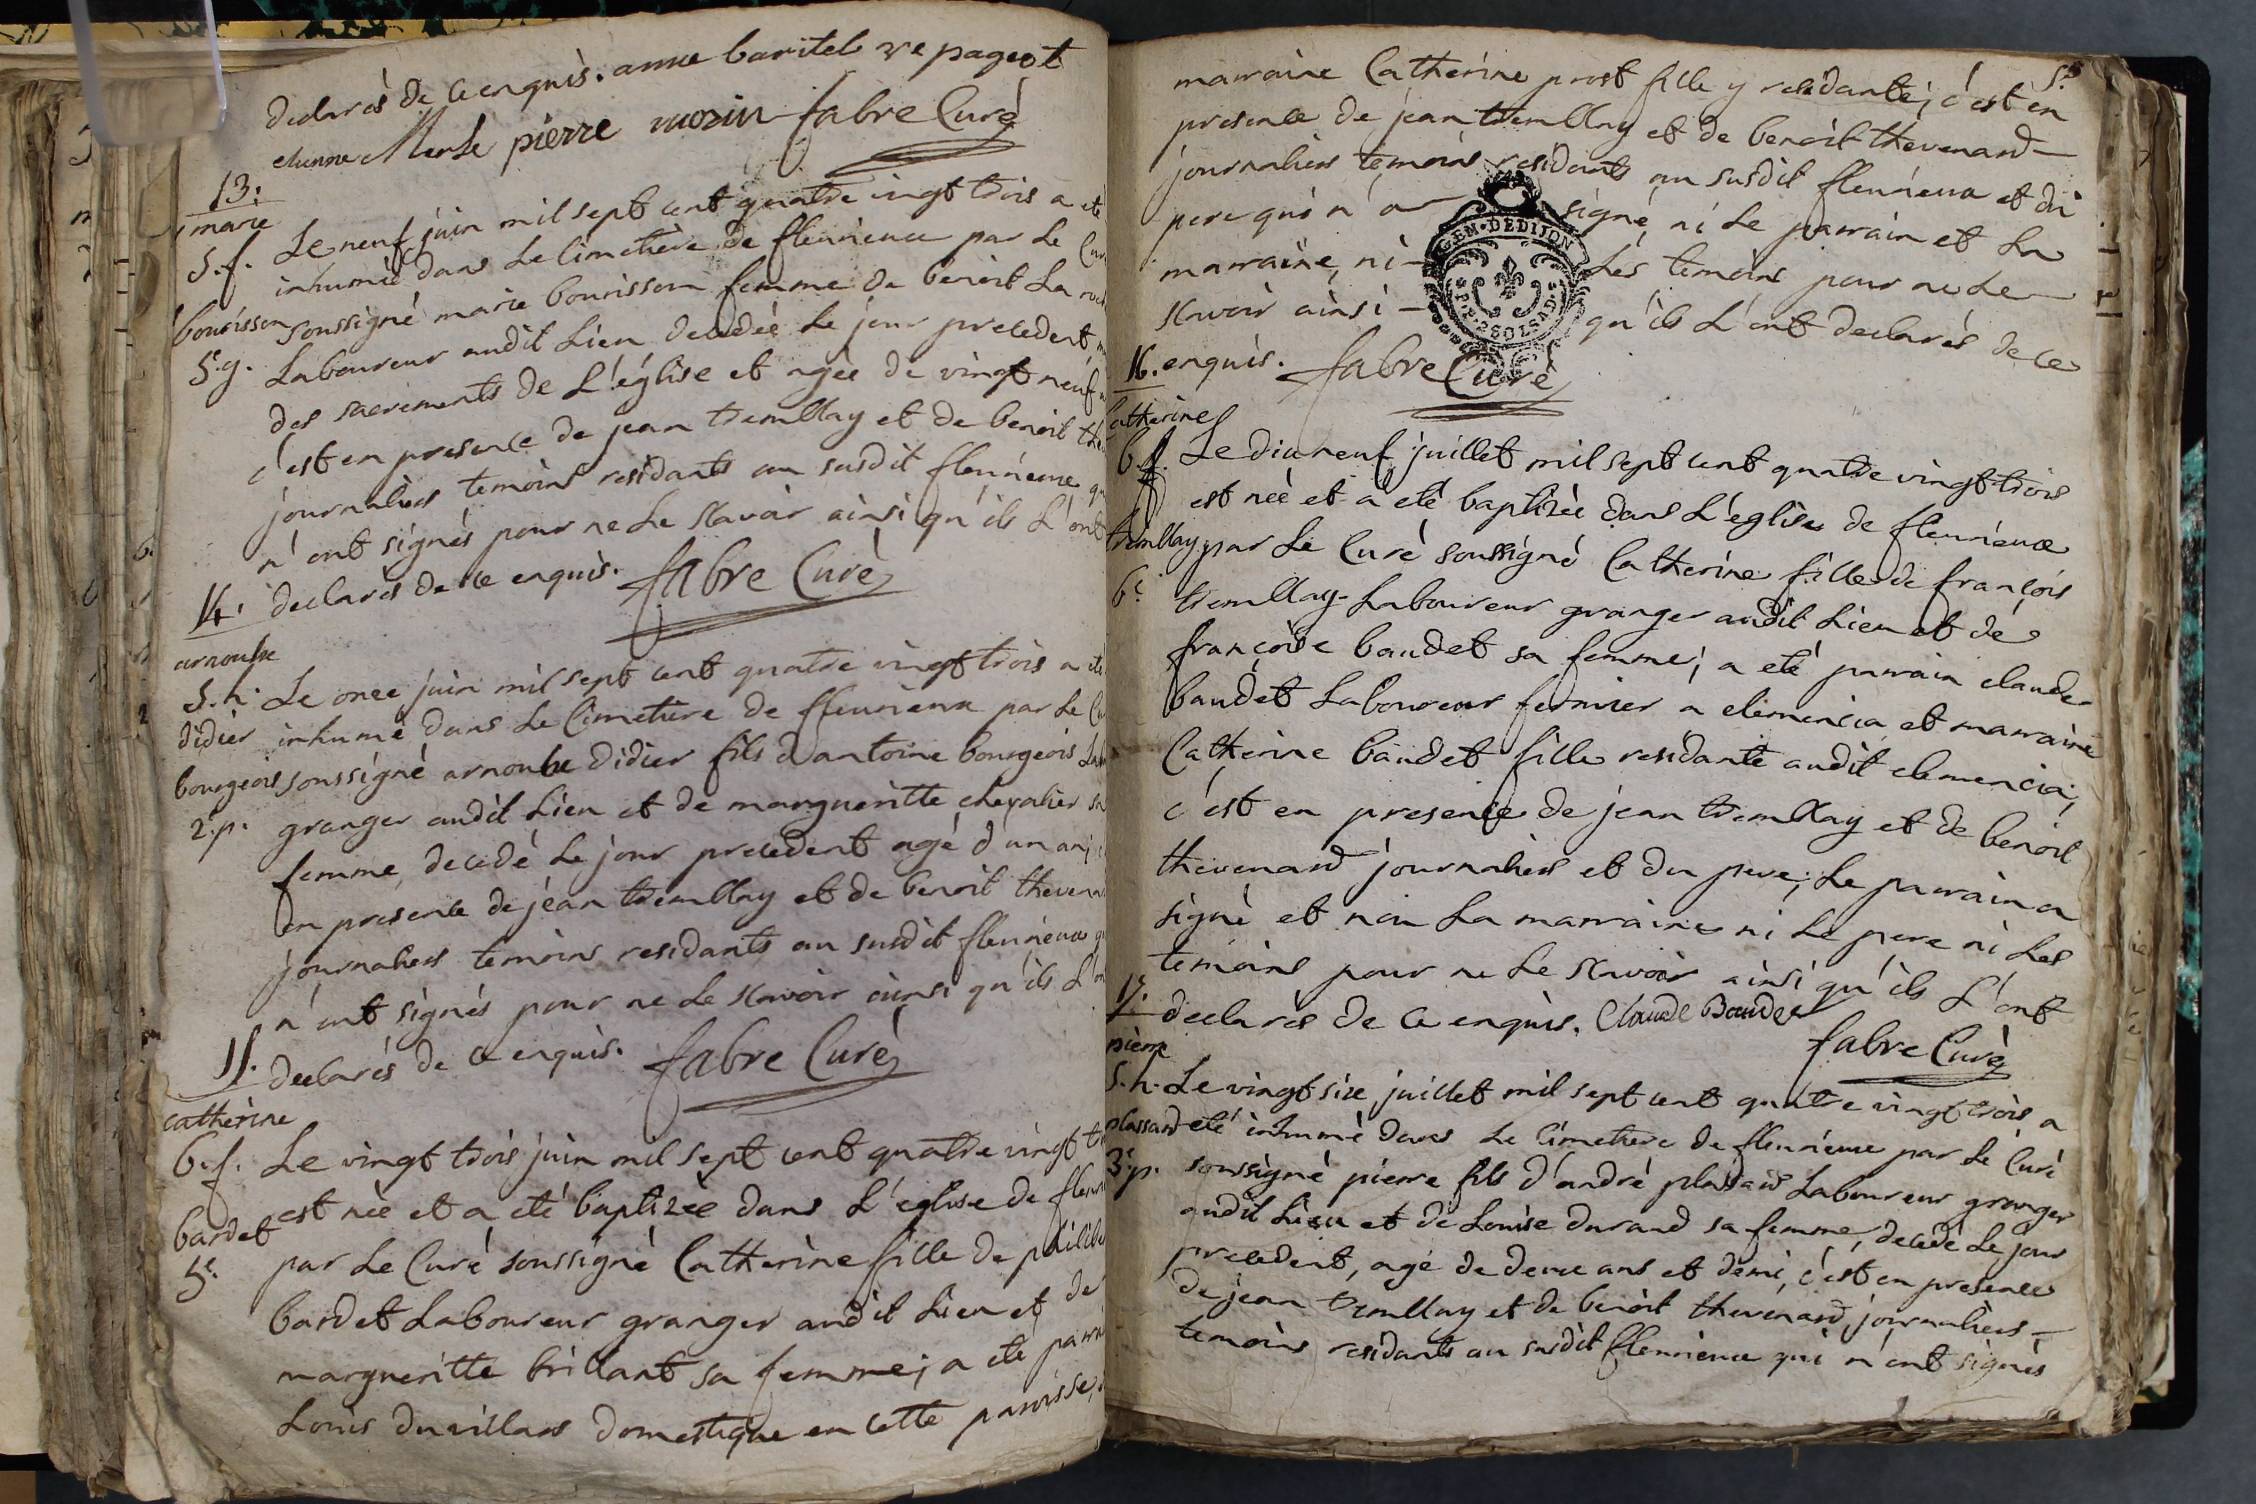 declarés de ce enquis. anne baritel ve pageot
etienne Merle pierre morin fabre Curé
13.
marie
s.f.
bourisson
5.g.
Le neuf juin mil sept cent quatre vingt trois a eté
inhumée dans Le Cimetière de fleurieux par Le Curé
soussigné marie bourisson femme de benoit La
Laboureur audit Lieu decedée Le jour precedent
des sacrements de L'église et agée de vingt neuf
c'est en presence de jean tremblay et de benoit
journaliers temoins residants au susdit fleurieux
n'ont signés pour ne Le sçavoir ainsi qu'ils L'ont
declarés de ce enquis. fabre Curé
14.
arnoulxe
s.h.
didier
bourgeois
2.p.
Le onze juin mil sept cent quatre vingt trois a eté
inhumé dans Le Cimetière de fleurieux par Le
soussigné arnoulxe didier fils d'antoine bourgeois
granger audit Lieu et de margueritte chevalier sa
femme, decedé Le jour precedent agé d'un an;
en presence de jean tremblay et de benoit
journaliers temoins residants au susdit fleurieux
n'ont signés pour ne Le sçavoir ainsi qu'ils L'ont
declarés de ce enquis. fabre Curé
15.
catherine
b.f.
bardet
5e.
Le vingt trois juin mil sept cent quatre vingt
est née et a eté baptizée dans L'eglise de
par Le Curé soussigné Catherine fille de
bardet Laboureur granger audit Lieu et de
margueritte brillant sa femme; a ete
Louis duvillars domestique en cette paroisse,
5.
marraine Catherine prost fille y residante; c'est en
presence de jean tremblay et de benoit thevenard
journaliers temoins residants au susdit fleurieux et du
pere qui n'a signé, ni Le parrain et La
marraine, ni Les temoins pour ne Le
sçavoir ainsi qu'ils L'ont declarés de ce
enquis. fabre Curé
GEN. DE DIJON
16.
Catherine
b.f.
tremblay
6e.
Le dix neuf juillet mil sept cent quatre vingt trois
est née et a eté baptizée dans L'eglise de fleurieux
par Le Curé soussigné Catherine fille de françois
tremblay Laboureur granger audit Lieu et de
françoise baudet sa femme; a eté parrain claude
baudet Laboureur fermier a clemencia et marraine
Catherine baudet fille residante audit clemencia;
c'est en presence de jean tremblay et de benoit
thevenard journaliers et du pere; Le parrain a
signé et non La marraine ni Le pere ni Les
temoins pour ne Le sçavoir ainsi qu'ils L'ont
declarés de ce enquis. Claude Baudet
fabre Curé
17.
pierre
s.h.
plassard
3.p.
Le vingt six juillet mil sept cent quatre vingt trois a
eté inhumé dans Le Cimetiere de fleurieux par Le Curé
soussigné pierre fils d'andré plassard Laboureur granger
audit Lieu et de Louise durand sa femme, decedé Le jour
precedent, agé de deux ans et demi, c'est en presence
de jean tremblay et de benoit thevenard journaliers
temoins residants au susdit fleurieux qui n'ont signés